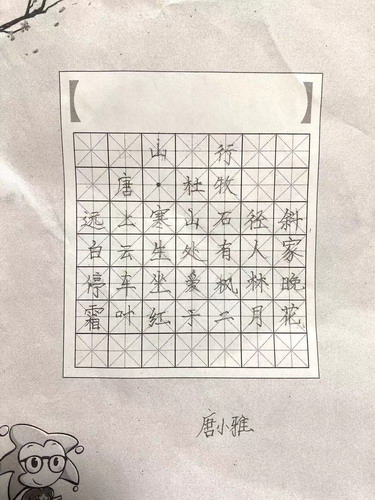 山行
唐·杜牧
远上寒山石径斜
白云生处有人家
停车坐爱枫林晚
霜叶红于二月花
唐小雅